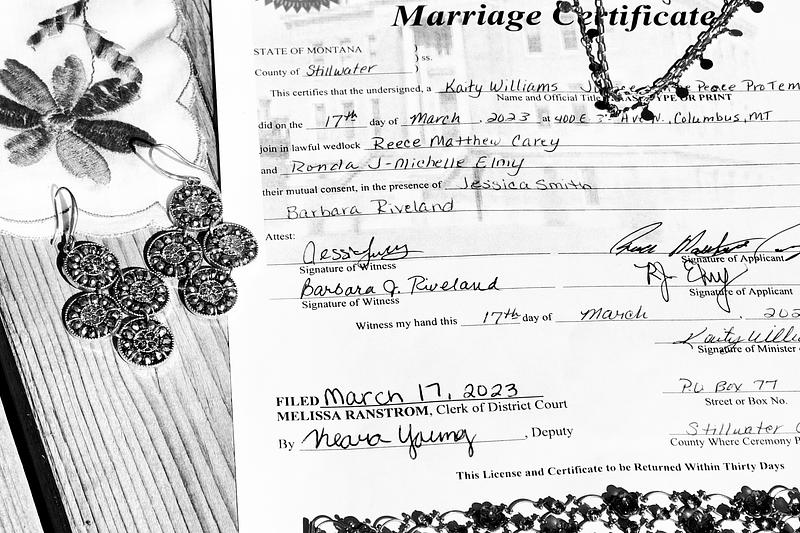 Marriage Certificate
STATE OF MONTANA )
) ss.
County of Stillwater )
This certifies that the undersigned, a Kaity Williams Peace Pro Tem
Name and Official Title PLEASE TYPE OR PRINT
did on the 17th day of March, 2023 at 400 E. 3rd Ave N., Columbus, MT
join in lawful wedlock Reece Matthew Carey
and Ronda J-Michelle Elmy
their mutual consent, in the presence of Jessica Smith
Barbara Riveland
Attest:
Signature of Witness Signature of Applicant
Barbara J. Riveland RJ Elmy
Signature of Witness Signature of Applicant
Witness my hand this 17th day of March, 202
Kaity Willia
Signature of Minister
FILED March 17, 2023 P.O Box 77
MELISSA RANSTROM, Clerk of District Court Street or Box No.
By Neava Young, Deputy Stillwater C
County Where Ceremony P
This License and Certificate to be Returned Within Thirty Days